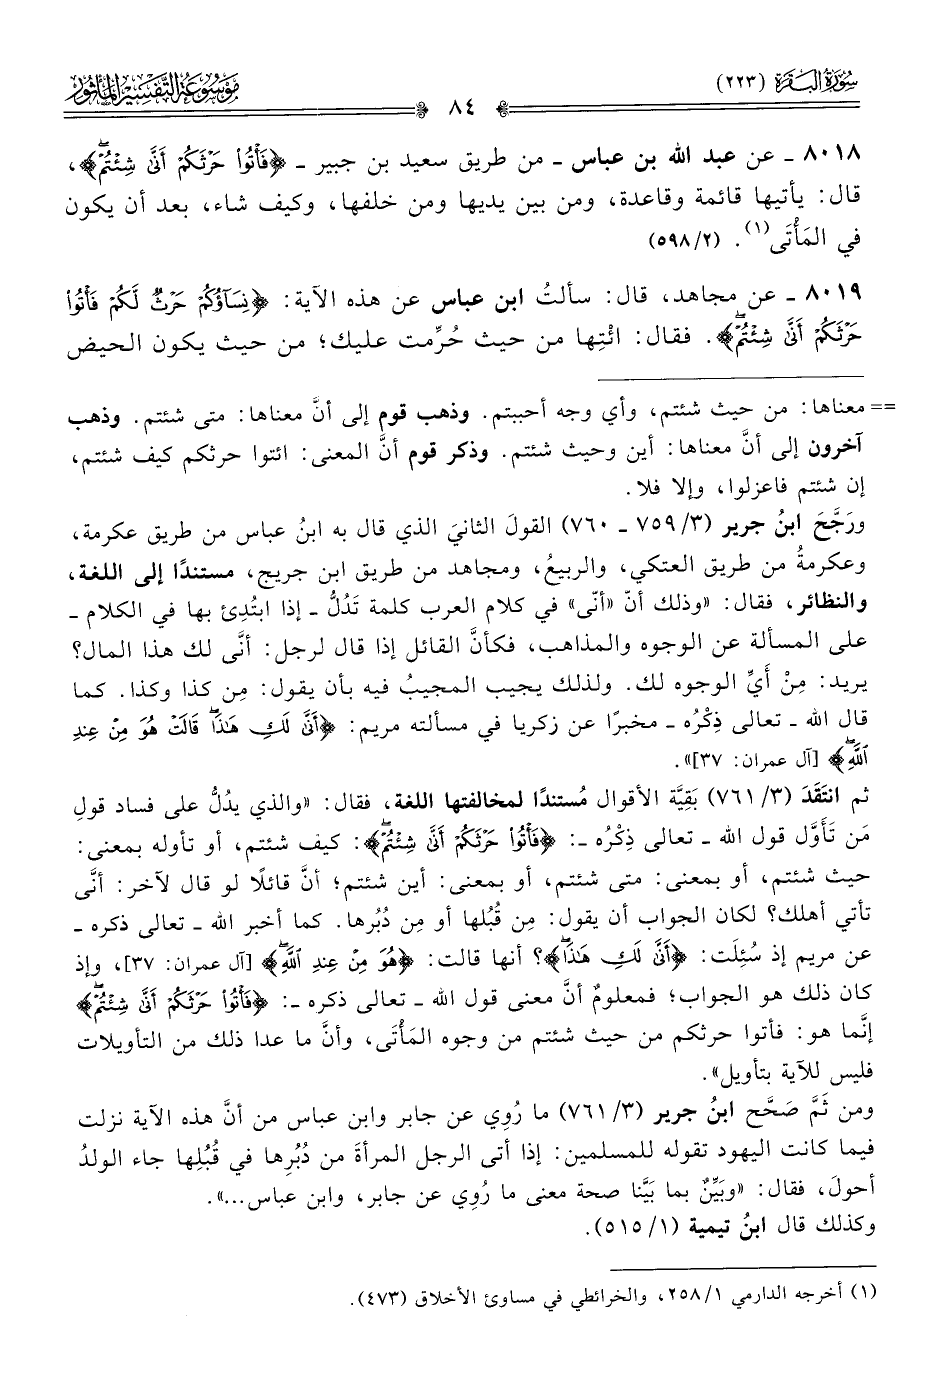 سُورَةُ البَقَرَةِ (٢٢٣)
٨٤
مَوْسُوعَةُ التَّفْسِيرِ المَأْثُورِ
٨٠١٨ ـ عن عبد الله بن عباس ـ من طريق سعيد بن جبير ـ ﴿فَأْتُوا۟ حَرْثَكُمْ أَنَّىٰ شِئْتُمْۖ﴾،
قال: يأتيها قائمة وقاعدة، ومن بين يديها ومن خلفها، وكيف شاء، بعد أن يكون
في المَأْتَى(١). (٥٩٨/٢)
٨٠١٩ ـ عن مجاهد، قال: سألتُ ابن عباس عن هذه الآية: ﴿نِسَآؤُكُمْ حَرْثٌ لَّكُمْ فَأْتُوا۟
حَرْثَكُمْ أَنَّىٰ شِئْتُمْۖ﴾. فقال: ائْتِها من حيث حُرِّمت عليك؛ من حيث يكون الحيض
== معناها: من حيث شئتم، وأي وجه أحببتم. وذهب قوم إلى أنَّ معناها: متى شئتم. وذهب
آخرون إلى أنَّ معناها: أين وحيث شئتم. وذكر قوم أنَّ المعنى: ائتوا حرثكم كيف شئتم،
إن شئتم فاعزلوا، وإلا فلا.
ورَجَّحَ ابنُ جرير (٣/ ٧٥٩ ـ ٧٦٠) القولَ الثانيَ الذي قال به ابنُ عباس من طريق عكرمة،
وعكرمةُ من طريق العتكي، والربيعُ، ومجاهد من طريق ابن جريج، مستندًا إلى اللغة،
والنظائر، فقال: «وذلك أنّ «أنّى» في كلام العرب كلمة تَدُلُّ ـ إذا ابتُدِئ بها في الكلام ـ
على المسألة عن الوجوه والمذاهب، فكأنَّ القائل إذا قال لرجل: أنَّى لك هذا المال؟
يريد: مِنْ أَيِّ الوجوه لك. ولذلك يجيب المجيبُ فيه بأن يقول: مِن كذا وكذا. كما
قال الله ـ تعالى ذِكْرُه ـ مخبرًا عن زكريا في مسألته مريم: ﴿أَنَّىٰ لَكِ هَـٰذَاۖ قَالَتْ هُوَ مِنْ عِندِ
ٱللَّهِۖ﴾ [آل عمران: ٣٧]».
ثم انتَقَدَ (٣/ ٧٦١) بَقِيَّة الأقوال مُستندًا لمخالفتها اللغة، فقال: «والذي يدُلُّ على فساد قولِ
مَن تَأَوَّل قول الله ـ تعالى ذِكْرُه ـ: ﴿فَأْتُوا۟ حَرْثَكُمْ أَنَّىٰ شِئْتُمْۖ﴾: كيف شئتم، أو تأوله بمعنى:
حيث شئتم، أو بمعنى: متى شئتم، أو بمعنى: أين شئتم؛ أنَّ قائلًا لو قال لآخر: أنَّى
تأتي أهلك؟ لكان الجواب أن يقول: مِن قُبُلها أو مِن دُبُرها. كما أخبر الله ـ تعالى ذكره ـ
عن مريم إذ سُئِلَت: ﴿أَنَّىٰ لَكِ هَـٰذَاۖ﴾؟ أنها قالت: ﴿هُوَ مِنْ عِندِ ٱللَّهِۖ﴾ [آل عمران: ٣٧]، وإذ
كان ذلك هو الجواب؛ فمعلومٌ أنَّ معنى قول الله ـ تعالى ذكره ـ: ﴿فَأْتُوا۟ حَرْثَكُمْ أَنَّىٰ شِئْتُمْۖ﴾
إنَّما هو: فأتوا حرثكم من حيث شئتم من وجوه المَأْتَى، وأنَّ ما عدا ذلك من التأويلات
فليس للآية بتأويل».
ومن ثَمَّ صَحَّح ابنُ جرير (٣/ ٧٦١) ما رُوِي عن جابر وابن عباس من أنَّ هذه الآية نزلت
فيما كانت اليهود تقوله للمسلمين: إذا أتى الرجل المرأةَ من دُبُرِها في قُبُلِها جاء الولدُ
أحولَ، فقال: «وبَيِّنٌ بما بَيَّنا صحة معنى ما رُوِي عن جابر، وابن عباس...».
وكذلك قال ابنُ تيمية (١/ ٥١٥).
(١) أخرجه الدارمي ٢٥٨/١، والخرائطي في مساوئ الأخلاق (٤٧٣).